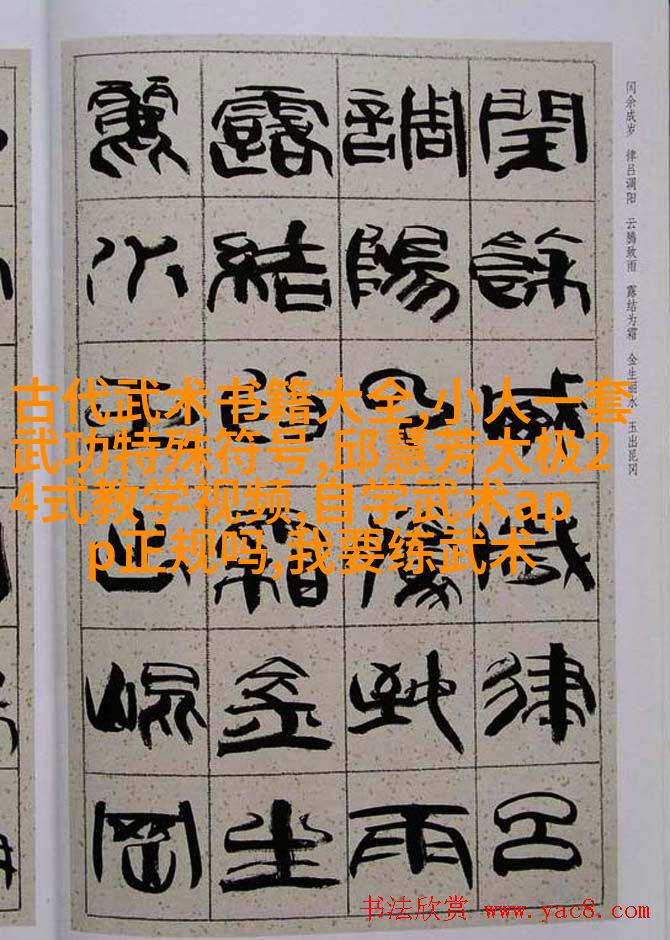 闰余成岁 律吕调阳 云腾致雨 露结为霜 金生丽水 玉出昆冈
閏餘成歲律呂
調陽云騰致雨
露結為霜金生
麗水玉出崐岡
古代武术书籍大全,小人一套
武功特殊符号,邱慧芳太极2
4式教学视频,自学武术ap
p正规吗,我要练武术
书法欣赏 www.yac8.com